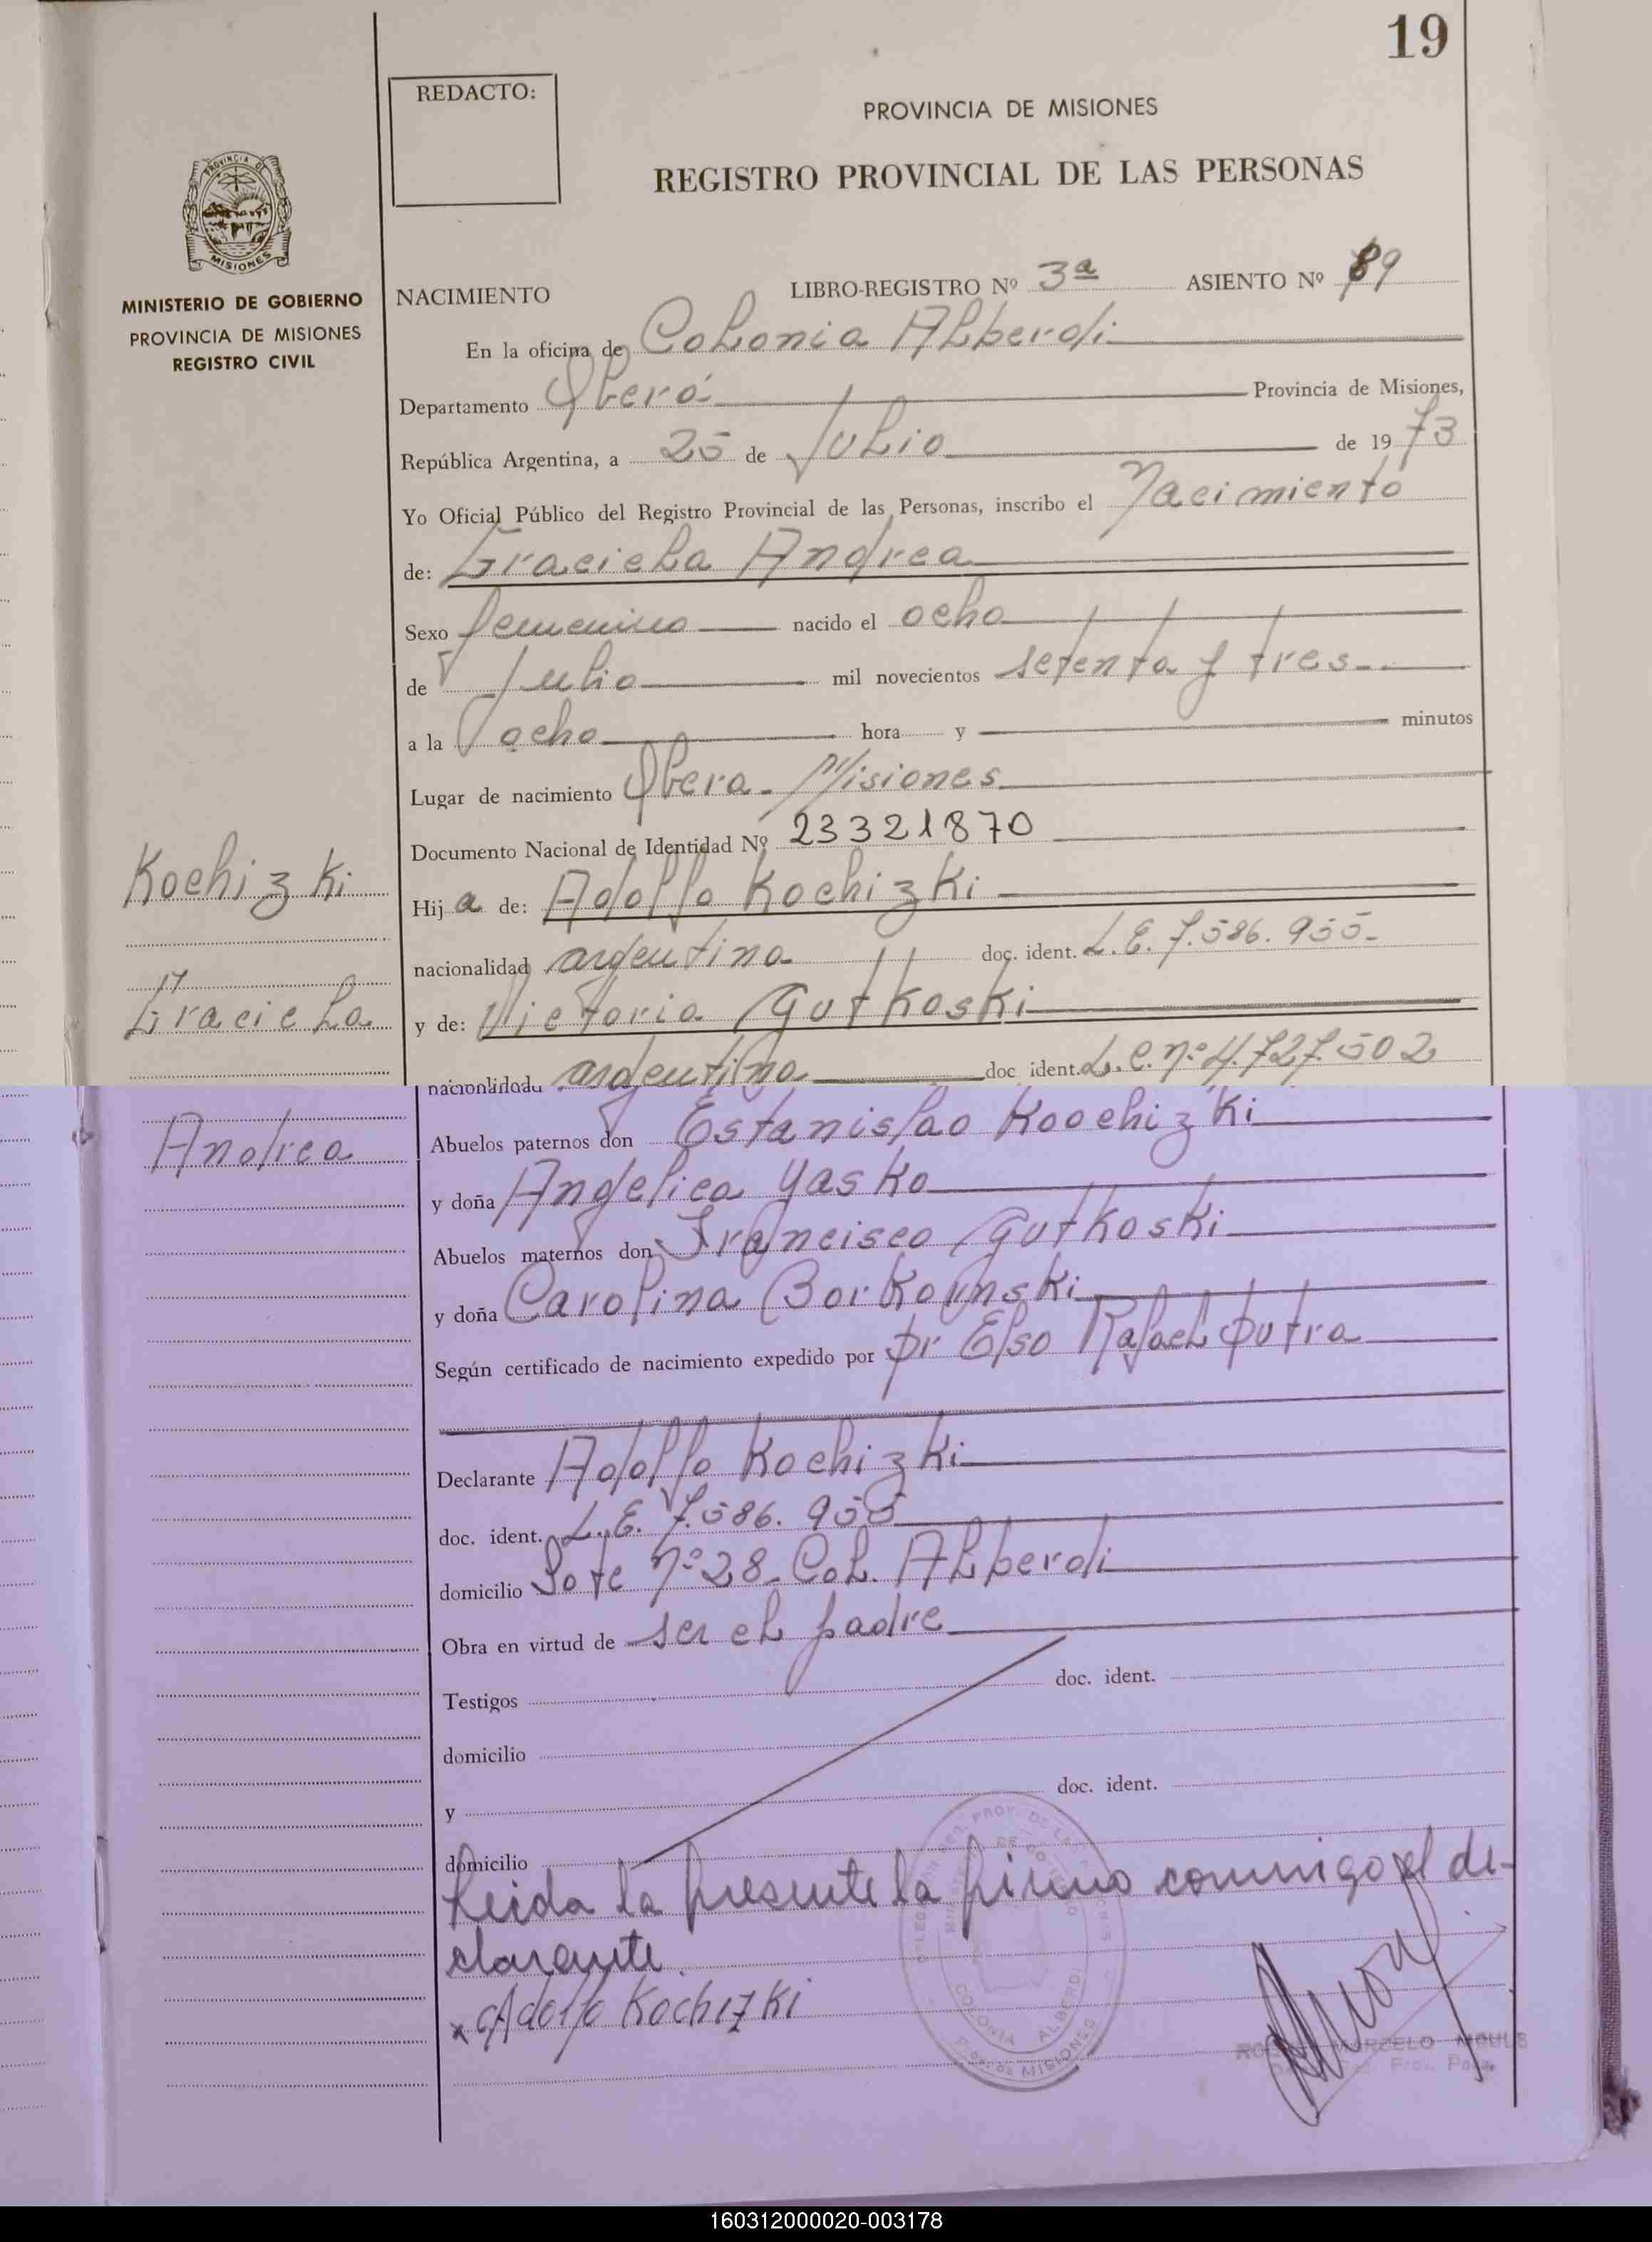 19
REDACTO:
PROVINCIA DE MISIONES
REGISTRO PROVINCIAL DE LAS PERSONAS
PROVINCIA DE
MISIONES
MINISTERIO DE GOBIERNO
PROVINCIA DE MISIONES
REGISTRO CIVIL
NACIMIENTO LIBRO-REGISTRO Nº 3ª ASIENTO Nº 89
En la oficina de Colonia Alberdi
Departamento Oberá Provincia de Misiones,
República Argentina, a 25 de Julio de 1973
Yo Oficial Público del Registro Provincial de las Personas, inscribo el Nacimiento
de: Graciela Andrea
Sexo femenino nacido el ocho
de Julio mil novecientos setenta y tres
a la ocho hora y minutos
Lugar de nacimiento Obera - Misiones
Documento Nacional de Identidad Nº 23321870
Kochizki
Hija de: Adolfo Kochizki
nacionalidad argentina doc. ident. L.E. 7.586.955-
Graciela
y de: Victoria Gutkoski
nacionalidad argentina doc ident. L.C. nº 4.727.502
Andrea
Abuelos paternos don Estanislao Koochizki
y doña Angelica Yasko
Abuelos maternos don Francisco Gutkoski
y doña Carolina Borkownski
Según certificado de nacimiento expedido por Dr Elso Rafael Dutra
Declarante Adolfo Kochizki
doc. ident. L.E. 7.586.955
domicilio Lote nº 28 - Col. Alberdi
Obra en virtud de ser el padre
Testigos doc. ident.
domicilio
y doc. ident.
domicilio
Leida la presente la firma conmigo el de-
clarante.
x Adolfo Kochizki
COLONIA ALBERDI
MISIONES
MARCELO
160312000020-003178